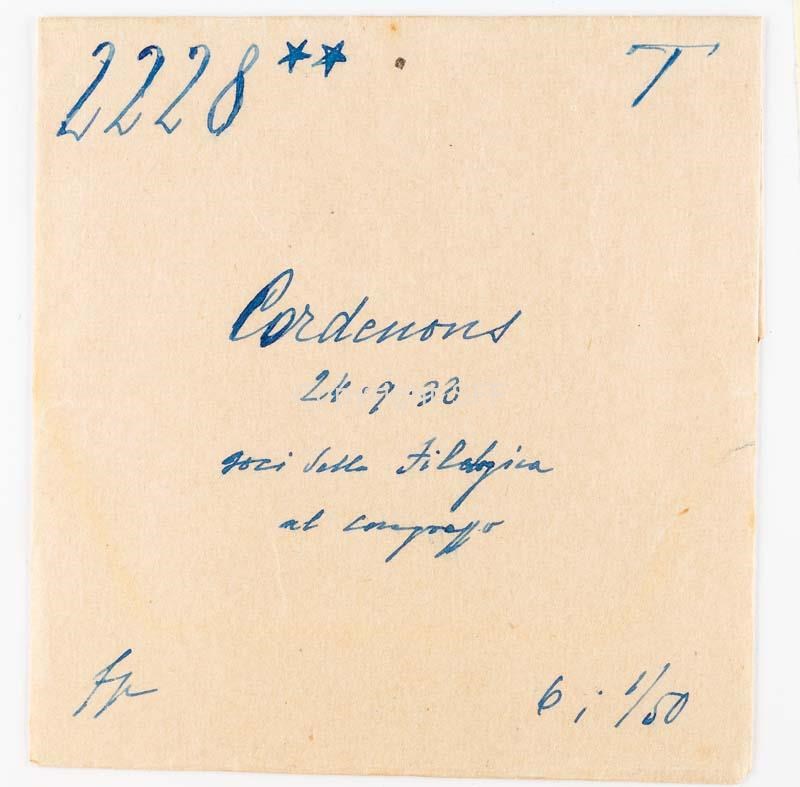 2228** T
Cordenons
24·9·33
soci della Filologica
al congresso
fp
6 i 1/50